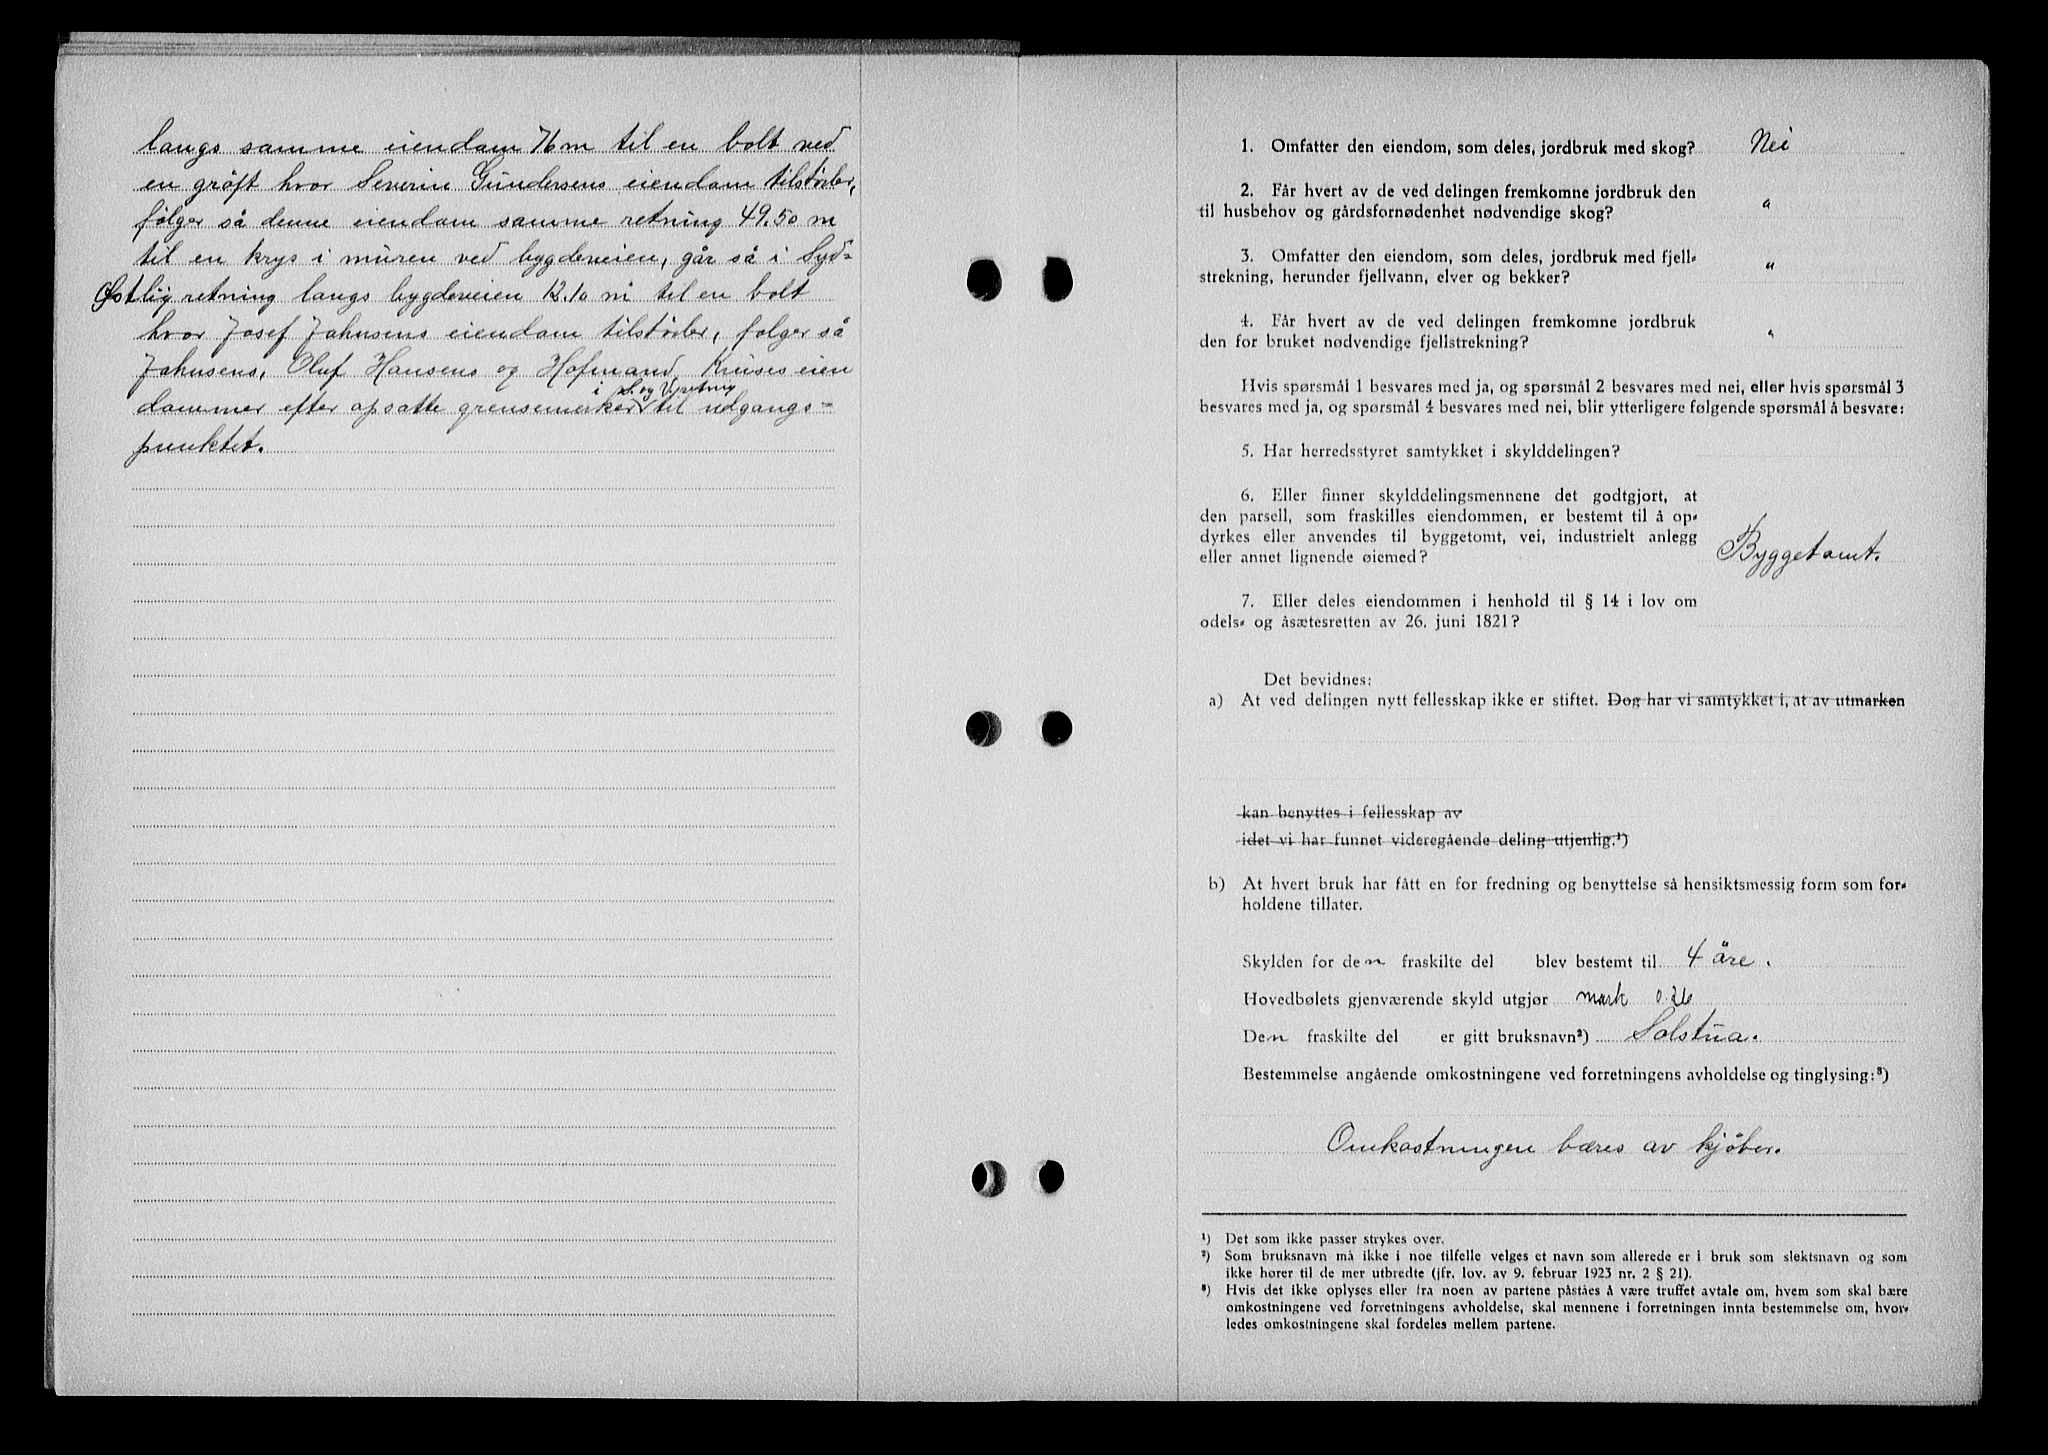 langs samme eiendam 76 m til en bolt ved
en grøft hvor Severin Gundersens eiendam tilstøder,
følger så denne eiendam samme retning 49.50 m
til en krys i muren ved bygdeveien, går så i Syd-
Østlig retning langs bygdeveien 12.10 m til en bolt
hvor Josef Jahnsens eiendam tilstøder, følger så
Jahnsens, Oluf Hansens og Hofmand Kruses eien
i S. og V. retning
dammer efter opsatte grensemerker til udgangs-
punktet.
1. Omfatter den eiendom, som deles, jordbruk med skog? Nei
2. Får hvert av de ved delingen fremkomne jordbruk den
til husbehov og gårdsfornødenhet nødvendige skog? "
3. Omfatter den eiendom, som deles, jordbruk med fjell-
strekning, herunder fjellvann, elver og bekker? "
4. Får hvert av de ved delingen fremkomne jordbruk
den for bruket nødvendige fjellstrekning? "
Hvis spørsmål 1 besvares med ja, og spørsmål 2 besvares med nei, eller hvis spørsmål 3
besvares med ja, og spørsmål 4 besvares med nei, blir ytterligere følgende spørsmål å besvare:
5. Har herredsstyret samtykket i skylddelingen?
6. Eller finner skylddelingsmennene det godtgjort, at
den parsell, som fraskilles eiendommen, er bestemt til å op-
dyrkes eller anvendes til byggetomt, vei, industrielt anlegg
eller annet lignende øiemed? Byggetomt.
7. Eller deles eiendommen i henhold til § 14 i lov om
odels- og åsætesretten av 26. juni 1821?
Det bevidnes:
a) At ved delingen nytt fellesskap ikke er stiftet. Dog har vi samtykket i, at av utmarken
kan benyttes i fellesskap av
idet vi har funnet videregående deling utjenlig.¹)
b) At hvert bruk har fått en for fredning og benyttelse så hensiktsmessig form som for-
holdene tillater.
Skylden for den fraskilte del blev bestemt til 4 åre.
Hovedbølets gjenværende skyld utgjør mark 0.26
Den fraskilte del er gitt bruksnavn²) Solstua.
Bestemmelse angående omkostningene ved forretningens avholdelse og tinglysing:³)
Omkostningen bæres av kjøber.
¹) Det som ikke passer strykes over.
²) Som bruksnavn må ikke i noe tilfelle velges et navn som allerede er i bruk som slektsnavn og som
ikke hører til de mer utbredte (jfr. lov. av 9. februar 1923 nr. 2 § 21).
³) Hvis det ikke oplyses eller fra noen av partene påståes å være truffet avtale om, hvem som skal bære
omkostningene ved forretningens avholdelse, skal mennene i forretningen innta bestemmelse om, hvor-
ledes omkostningene skal fordeles mellem partene.